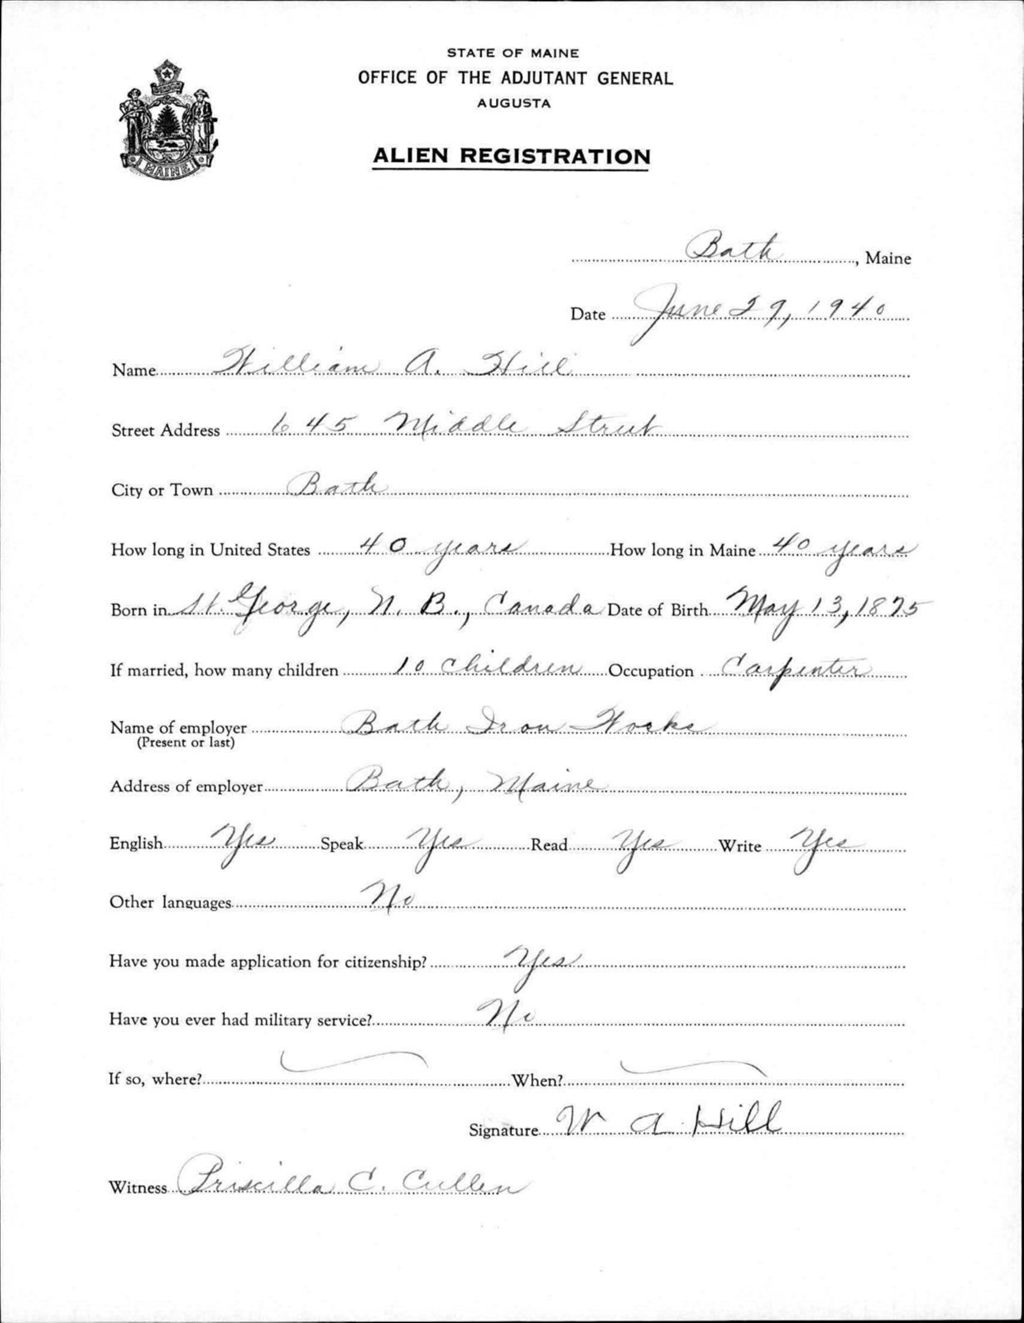 STATE OF MAINE
OFFICE OF THE ADJUTANT GENERAL
AUGUSTA
ALIEN REGISTRATION
MAINE
Bath, Maine
Date June 29, 1940
Name William A. Hill
Street Address 645 Middle Street
City or Town Bath
How long in United States 40 years How long in Maine 40 years
Born in St. George, N. B., Canada Date of Birth May 13, 1875
If married, how many children 10 children Occupation Carpenter
Name of employer Bath Iron Works
(Present or last)
Address of employer Bath, Maine
English Yes Speak Yes Read Yes Write Yes
Other languages No
Have you made application for citizenship? Yes
Have you ever had military service? No
If so, where? When?
Signature W A Hill
Witness Priscilla C. Cullen